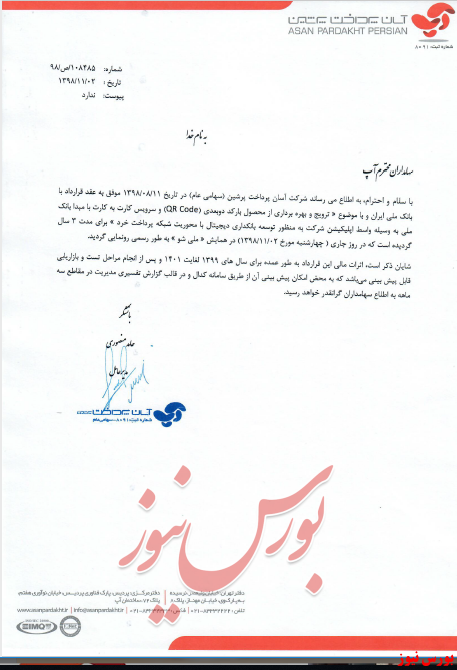 آسان پرداخت پرشین
ASAN PARDAKHT PERSIAN
شماره ثبت: ۸۰۹۱
شماره: ۱۰۸۴۸۵/ص/۹۸
تاریخ: ۱۳۹۸/۱۱/۰۲
پیوست: ندارد
به نام خدا
سهامداران محترم آپ
با سلام و احترام، به اطلاع می رساند شرکت آسان پرداخت پرشین (سهامی عام) در تاریخ ۱۳۹۸/۰۸/۱۱ موفق به عقد قرارداد با
بانک ملی ایران و با موضوع « ترویج و بهره برداری از محصول بارکد دوبعدی (QR Code) و سرویس کارت به کارت با مبدا بانک
ملی به وسیله واسط اپلیکیشن شرکت به منظور توسعه بانکداری دیجیتال با محوریت شبکه پرداخت خرد » برای مدت ۳ سال
گردیده است که در روز جاری ( چهارشنبه مورخ ۱۳۹۸/۱۱/۰۲) در همایش « ملی شو » به طور رسمی رونمایی گردید.
شایان ذکر است، اثرات مالی این قرارداد به طور عمده برای سال های ۱۳۹۹ لغایت ۱۴۰۱ و پس از انجام مراحل تست و بازاریابی
قابل پیش بینی می‌باشد که به محض امکان پیش بینی آن از طریق سامانه کدال و در قالب گزارش تفسیری مدیریت در مقاطع سه
ماهه به اطلاع سهامداران گرانقدر خواهد رسید.
با تشکر
حامد منصوری
مدیرعامل
آسان پرداخت
شماره ثبت: ۸۰۹۱ - سهامی عام
بورس نیوز
دفتر مرکزی: پردیس، پارک فناوری پردیس، خیابان نوآوری هفتم،
پلاک ۷۴، ساختمان آپ
دفتر تهران:
پلاک ۸
www.asanpardakht.ir | info@asanpardakht.ir
بورس نیوز